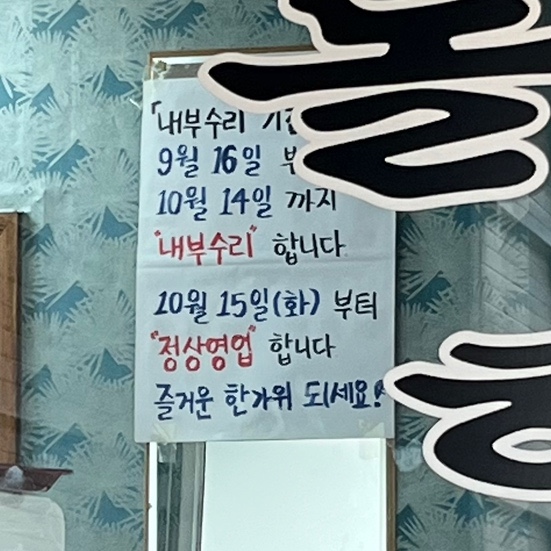 「내부수리
9월 16일
10월 14일 까지
"내부수리" 합니다
10월 15일(화) 부터
"정상영업" 합니다
즐거운 한가위 되세요!